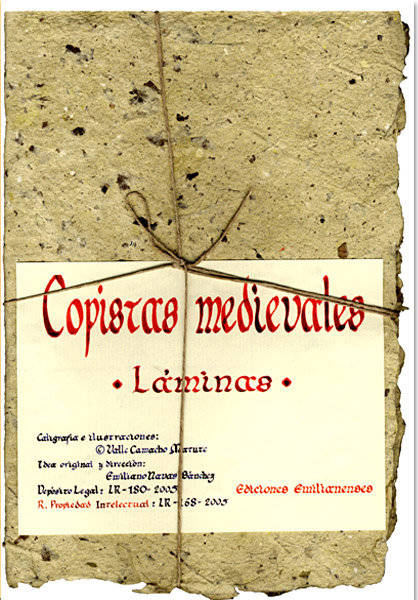 Copistas medievales
• Láminas •
Caligrafía e ilustraciones:
© Valle Camacho Matute
Idea original y dirección:
Emiliano Navas Sánchez
Depósito Legal: LR-180-2005
Ediciones Emilianenses
R. Propiedad Intelectual: LR-168-2005